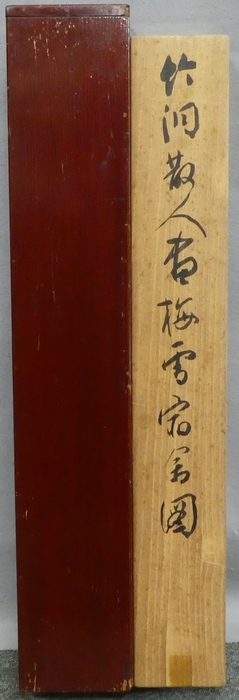 竹洞散人画梅雪宿禽圖